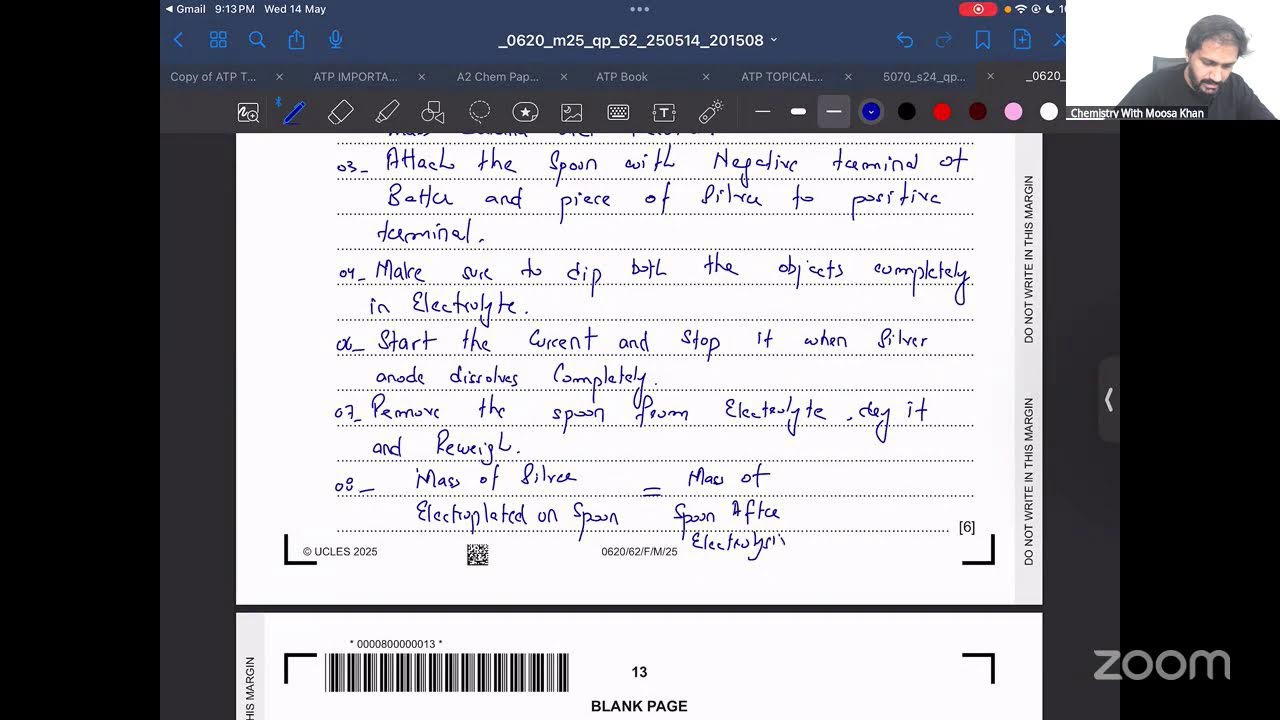 Gmail 9:13 PM Wed 14 May
_0620_m25_qp_62_250514_201508
Copy of ATP T... × ATP IMPORTA... × A2 Chem Pap... × ATP Book × ATP TOPICAL... × 5070_s24_qp... × _0620_
Chemistry With Moosa Khan
03_ Attach the Spoon with Negative terminal of
and piece of Silver to positive
terminal.
04_ Make sure to dip both the objects completely
in Electrolyte.
06_ Start the Current and Stop it when Silver
anode dissolves Completely.
07_ Remove the spoon from Electrolyte, dry it
and Reweigh.
08_ Mass of Silver = Mass of
Electroplated on Spoon Spoon After
Electrolysis
[6]
© UCLES 2025
0620/62/F/M/25
DO NOT WRITE IN THIS MARGIN
DO NOT WRITE IN THIS MARGIN
* 0000800000013 *
13
BLANK PAGE
HIS MARGIN
zoom